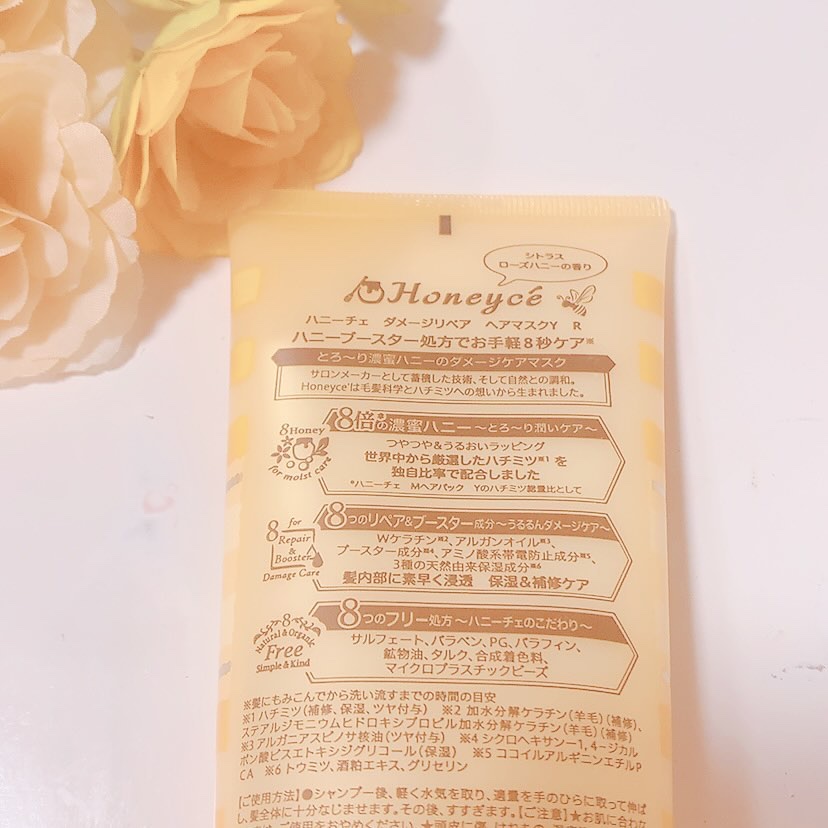 シトラス
ローズハニーの香り
Honeycé
ハニーチェ ダメージリペア ヘアマスクY R
ハニーブースター処方でお手軽8秒ケア※
とろ〜り濃蜜ハニーのダメージケアマスク
サロンメーカーとして蓄積した技術、そして自然との調和。
Honeyce'は毛髪科学とハチミツへの想いから生まれました。
8Honey
for moist care
8倍*の濃蜜ハニー〜とろ〜り潤いケア〜
つやつや&うるおいラッピング
世界中から厳選したハチミツ※1を
独自比率で配合しました
*ハニーチェ Mヘアパック Yのハチミツ総量比として
for
8 Repair
&
Booster
Damage Care
8つのリペア&ブースター成分〜うるるんダメージケア〜
Wケラチン※2、アルガンオイル※3、
ブースター成分※4、アミノ酸系帯電防止成分※5、
3種の天然由来保湿成分※6
髪内部に素早く浸透 保湿&補修ケア
8
Natural & Organic
Free
Simple & Kind
8つのフリー処方〜ハニーチェのこだわり〜
サルフェート、パラベン、PG、パラフィン、
鉱物油、タルク、合成着色料、
マイクロプラスチックビーズ
※髪にもみこんでから洗い流すまでの時間の目安
※1 ハチミツ(補修、保湿、ツヤ付与) ※2 加水分解ケラチン(羊毛)(補修)、
ステアルジモニウムヒドロキシプロピル加水分解ケラチン(羊毛)(補修)
※3 アルガニアスピノサ核油(ツヤ付与) ※4 シクロヘキサン-1,4-ジカル
ボン酸ビスエトキシジグリコール(保湿) ※5 ココイルアルギニンエチルP
CA ※6 トウミツ、酒粕エキス、グリセリン
【ご使用方法】●シャンプー後、軽く水気を取り、適量を手のひらに取って伸ば
し、髪全体に十分なじませます。その後、すすぎます。【ご注意】★お肌に合わな
ご使用をおやめください。★頭皮に傷、はれもの